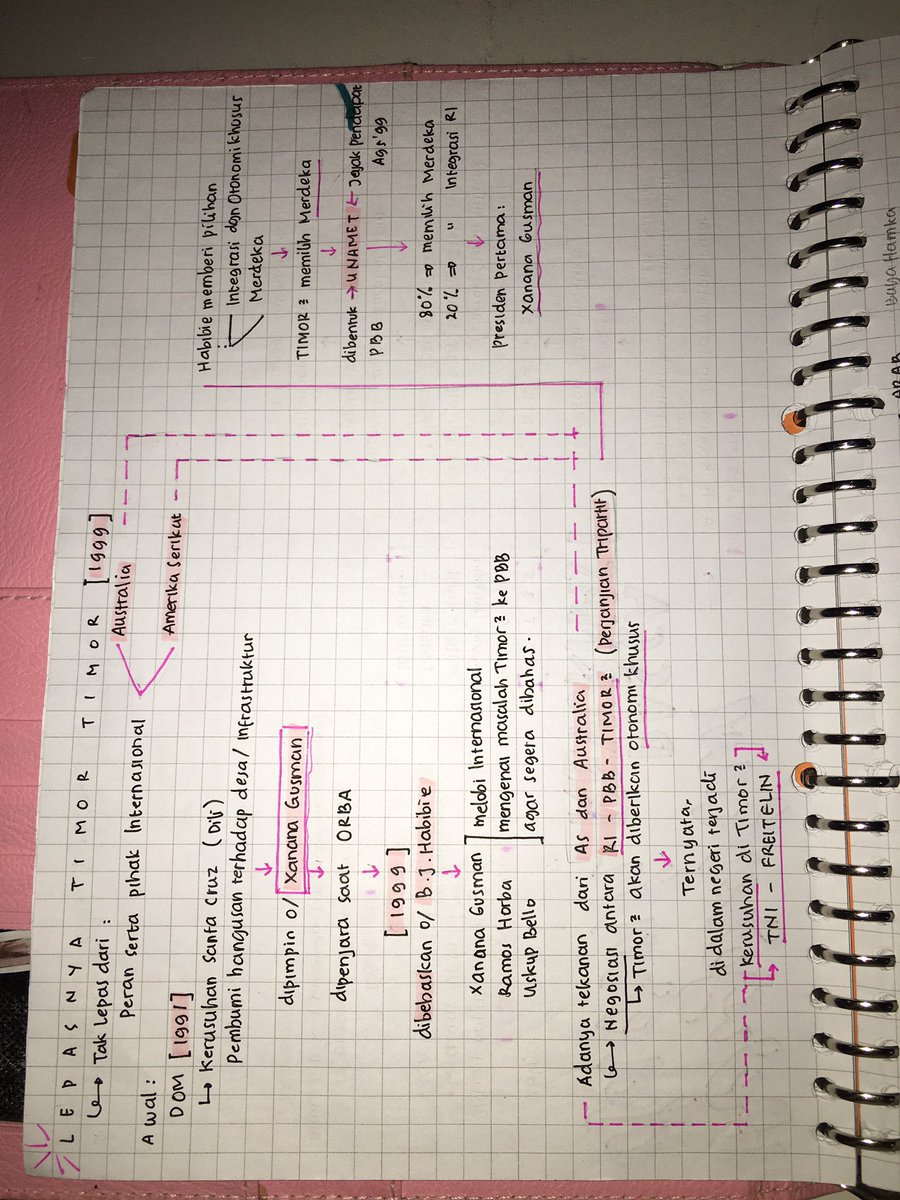 LEPASNYA TIMOR TIMOR [1999]
↳ Tak Lepas dari :
Peran serta pihak Internasional
Australia
Amerika Serikat
Awal :
DOM [1991]
↳ Kerusuhan Santa Cruz (Dili)
Pembumi hangusan terhadap desa/infrastruktur
↓
dipimpin o/ Xanana Gusman
↓
dipenjara saat ORBA
↓
[1999]
dibebaskan o/ B.J. Habibie
↓
Xanana Gusman ] melobi Internasional
Ramos Horba mengenai masalah Timor² ke PBB
Uskup Bello ] agar segera dibahas.
Adanya tekanan dari AS dan Australia
↳ Negosiasi antara RI - PBB - TIMOR² (Perjanjian Tripartit)
↳ Timor² akan diberikan otonomi khusus
↓
Ternyata,
di dalam negeri terjadi
[kerusuhan di Timor²]
↳ TNI - FREITELIN
Habibie memberi pilihan
Integrasi dgn Otonomi khusus
Merdeka
↓
TIMOR² memilih Merdeka
↓
dibentuk → UNAMET ← Jejak pendapat
PBB Ags'99
↓
80% ⇒ memilih Merdeka
20% ⇒ " Integrasi RI
↓
Presiden pertama :
Xanana Gusman
Buya Hamka
ARAB